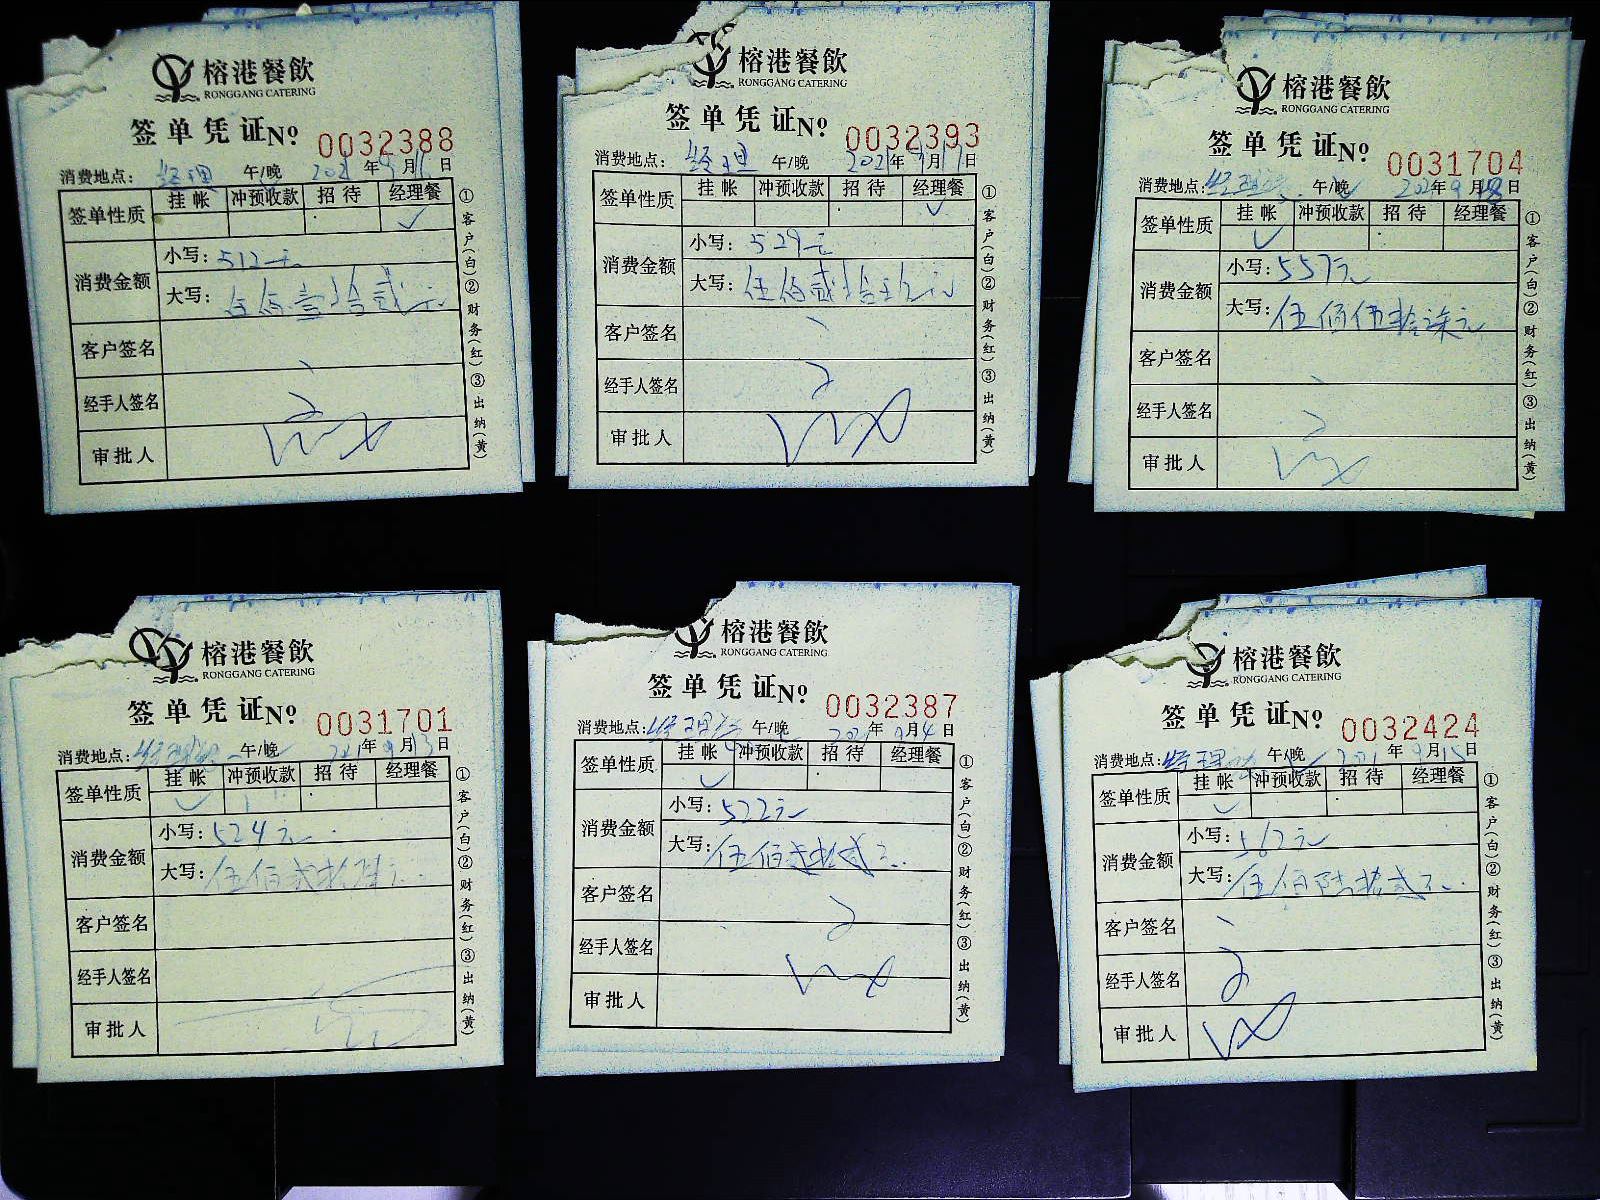 榕港餐飲
RONGGANG CATERING
签单凭证№ 0032388
消费地点：经理 午/晚 2021年9月11日
签单性质 挂帐 冲预收款 招待 经理餐
✓
消费金额 小写：512元
大写：伍佰壹拾贰元
客户签名
经手人签名
审批人
①客户(白)②财务(红)③出纳(黄)
榕港餐飲
RONGGANG CATERING
签单凭证№ 0032393
消费地点：经理 午/晚 2021年9月17日
签单性质 挂帐 冲预收款 招待 经理餐
✓
消费金额 小写：529元
大写：伍佰贰拾玖元
客户签名
经手人签名
审批人
①客户(白)②财务(红)③出纳(黄)
榕港餐飲
RONGGANG CATERING
签单凭证№ 0031704
消费地点：经理 午/晚 202年9月18日
签单性质 挂帐 冲预收款 招待 经理餐
✓
消费金额 小写：557元
大写：伍佰伍拾柒元
客户签名
经手人签名
审批人
①客户(白)②财务(红)③出纳(黄)
榕港餐飲
RONGGANG CATERING
签单凭证№ 0031701
消费地点：经理 午/晚 2021年9月13日
签单性质 挂帐 冲预收款 招待 经理餐
✓
消费金额 小写：524元
大写：伍佰贰拾肆元
客户签名
经手人签名
审批人
①客户(白)②财务(红)③出纳(黄)
榕港餐飲
RONGGANG CATERING
签单凭证№ 0032387
消费地点：经理 午/晚 2021年9月4日
签单性质 挂帐 冲预收款 招待 经理餐
✓
消费金额 小写：522元
大写：伍佰贰拾贰元
客户签名
经手人签名
审批人
①客户(白)②财务(红)③出纳(黄)
榕港餐飲
RONGGANG CATERING
签单凭证№ 0032424
消费地点：经理 午/晚 2021年9月15日
签单性质 挂帐 冲预收款 招待 经理餐
✓
消费金额 小写：562元
大写：伍佰陆拾贰元
客户签名
经手人签名
审批人
①客户(白)②财务(红)③出纳(黄)